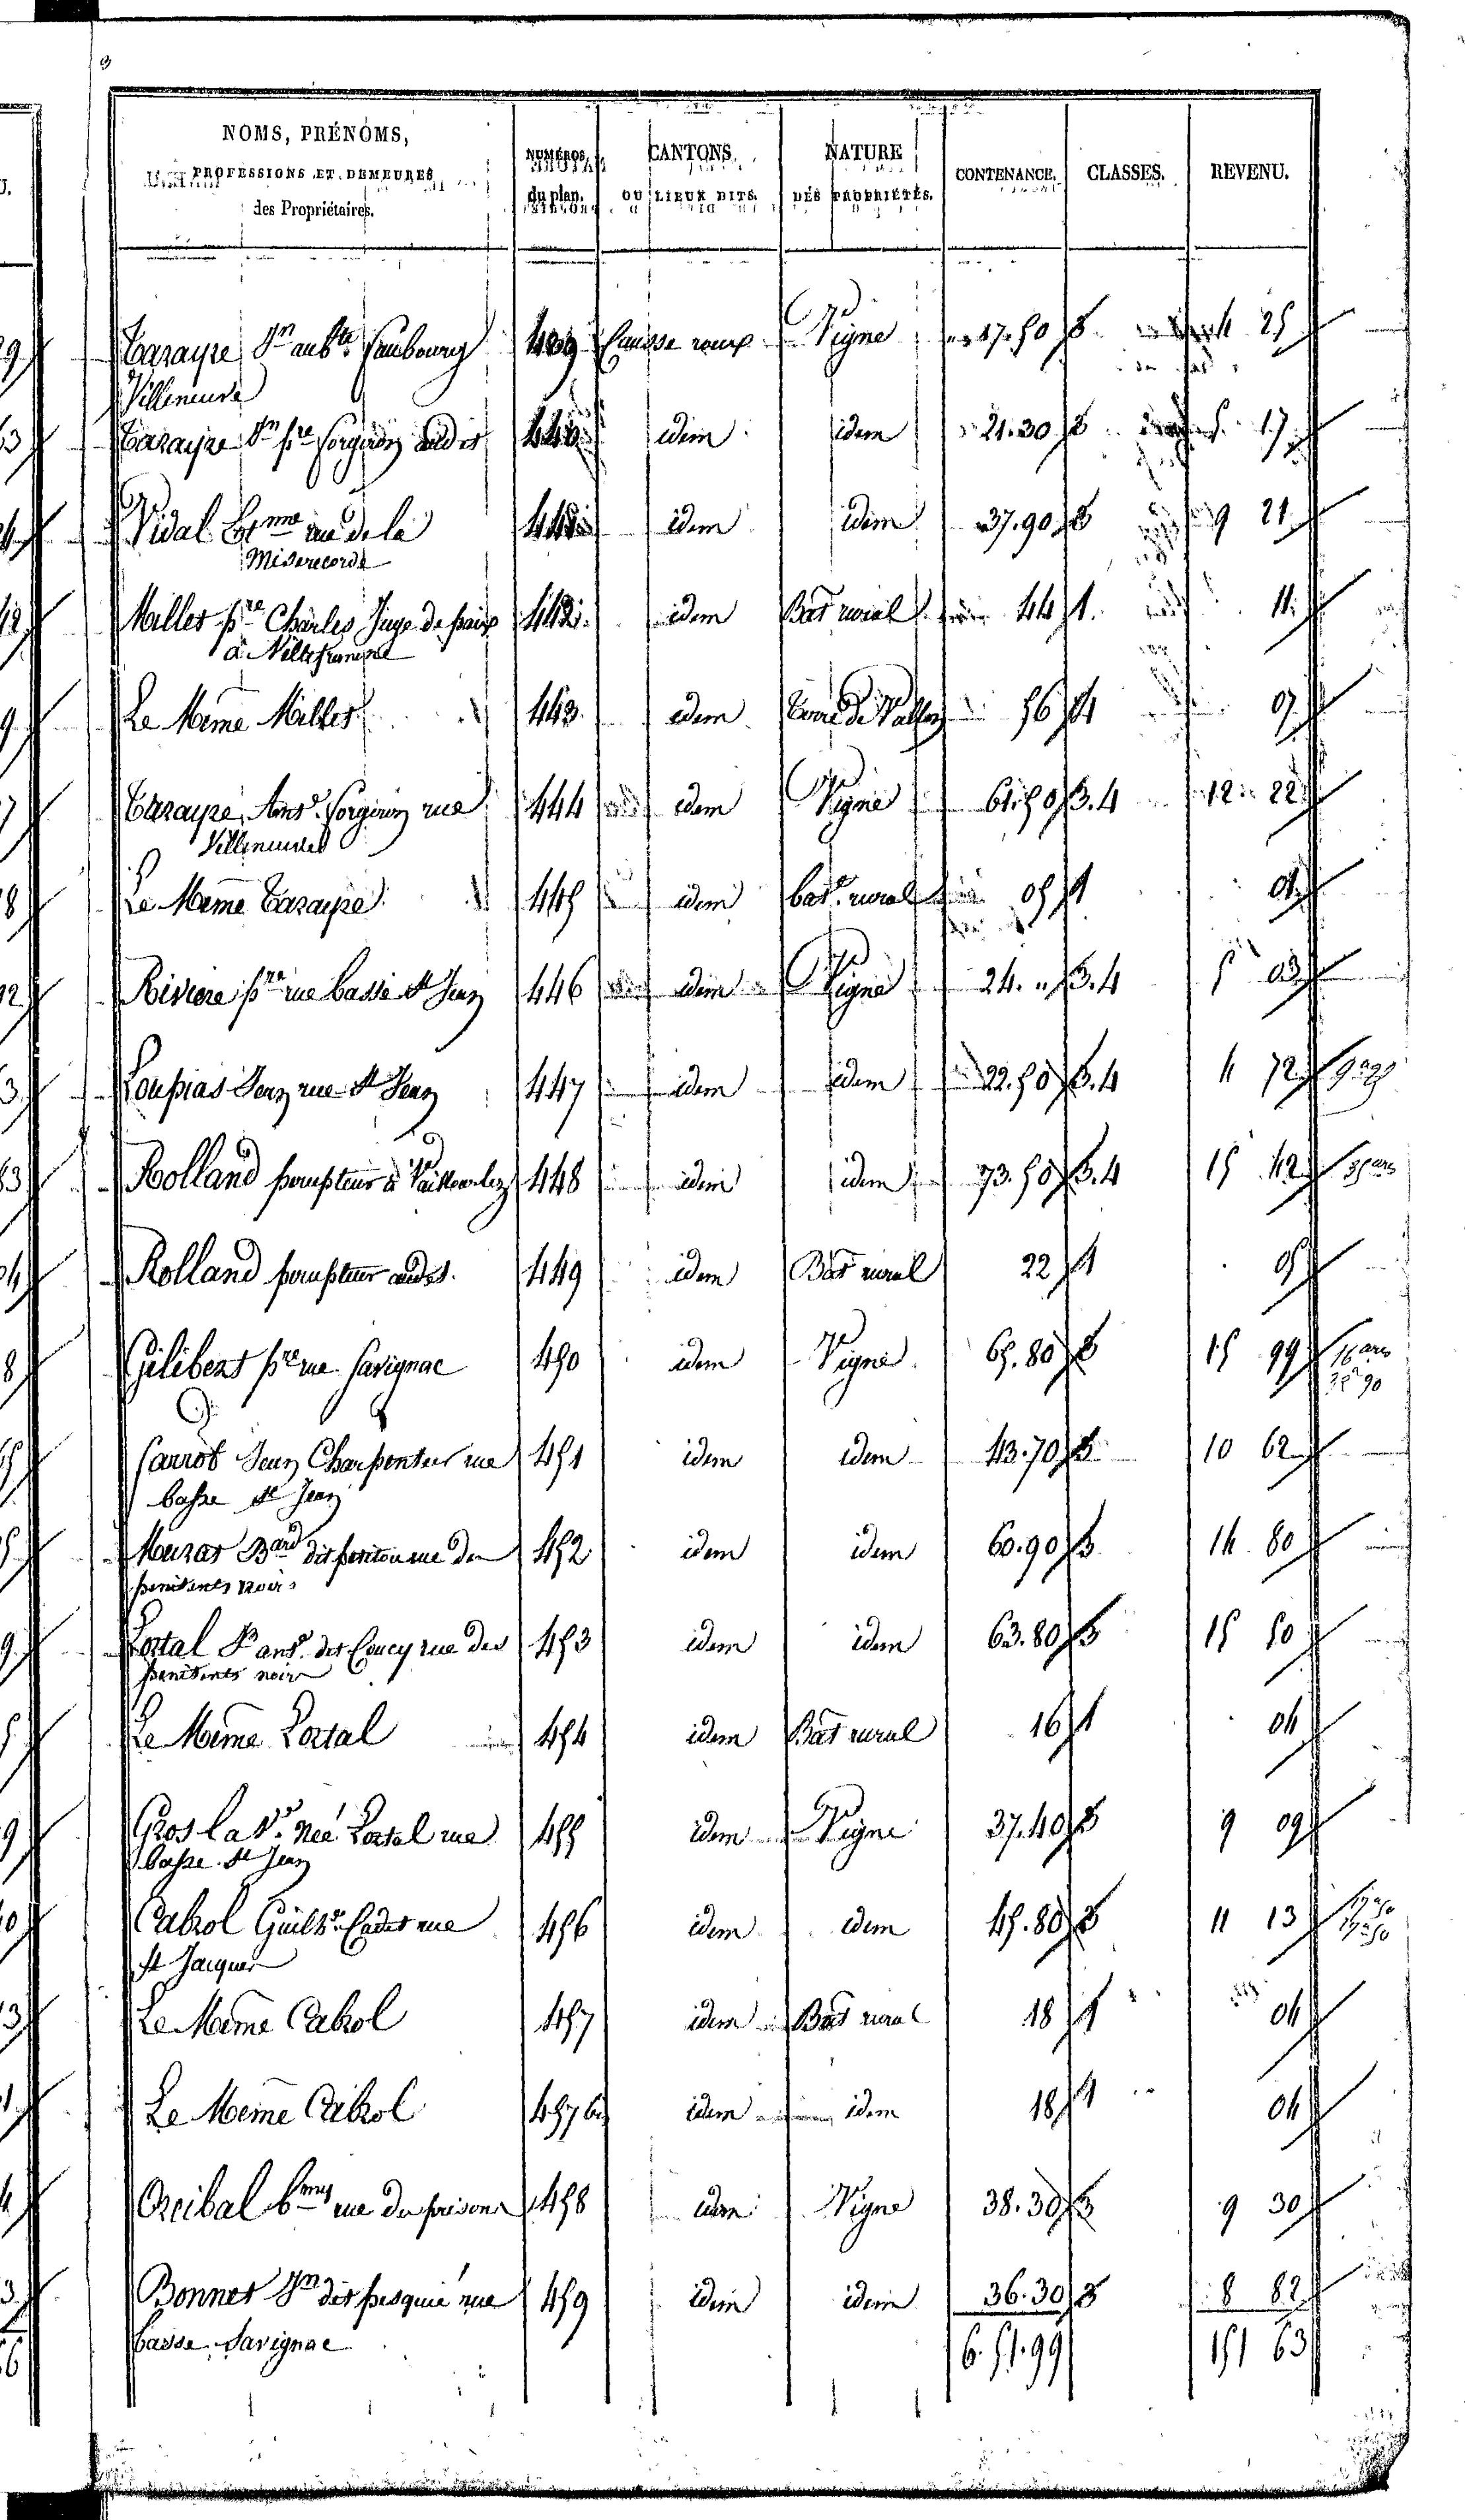 NOMS, PRÉNOMS, PROFESSIONS ET DEMEURES des Propriétaires. NUMÉROS du plan. CANTONS OU LIEUX DITS. NATURE DES PROPRIÉTÉS. CONTENANCE. CLASSES. REVENU.
Tarayre Jn aubte faubourg 439 Causse roup Vigne 17.50 3 4 25
Villeneuve
Tarayre Jn pre forgeron audit 440 idem idem 21.30 3 5 17
Vidal rue de la 441 idem idem 37.90 3 9 21
Miserecorde
Milles pre Charles Juge de paix 442 idem Bat rural 44 1 11
à Villefranche
Le Meme Milles 443 idem 56 4 07
Tarayre Ant. forgeron rue 444 idem Vigne 61.50 3.4 12 22
Villeneuve
Le Meme Tarayre 445 idem bat. rural 05 1 01
Riviere pre rue basse St Jean 446 idem Vigne 24. " 3.4 5 03
Loupias Jean rue St Jean 447 idem idem 22.50 3.4 4 72
Rolland percepteur à 448 idem idem 73.50 3.4 15 42
Rolland percepteur audit. 449 idem Bat rural 22 1 05
Gilibert pre rue Savignac 450 idem Vigne 65.80 3 15 99 16 ares
Carrot Jean Charpentier rue 451 idem idem 43.70 3 10 62
basse St Jean
Murat Bard dit rue des 452 idem idem 60.90 3 14 80
penitents noirs
Lortal ant. dit Coucy rue des 453 idem idem 63.80 3 15 50
penitents noirs
Le Meme Lortal 454 idem Bat rural 16 1 04
Gros la Ve. née Lortal rue 455 idem Vigne 37.40 3 9 09
basse St Jean
Cabrol Cadet rue 456 idem idem 45.80 3 11 13
St Jacques
Le Meme Cabrol 457 idem Bat rural 18 1 04
Le Meme Cabrol 457 bis idem idem 18 1 04
Orcibal rue des prisons 458 idem Vigne 38.30 3 9 30
Bonnet Jn dit pesquié rue 459 idem idem 36.30 3 8 82
basse Savignac
6.51.99 151 63